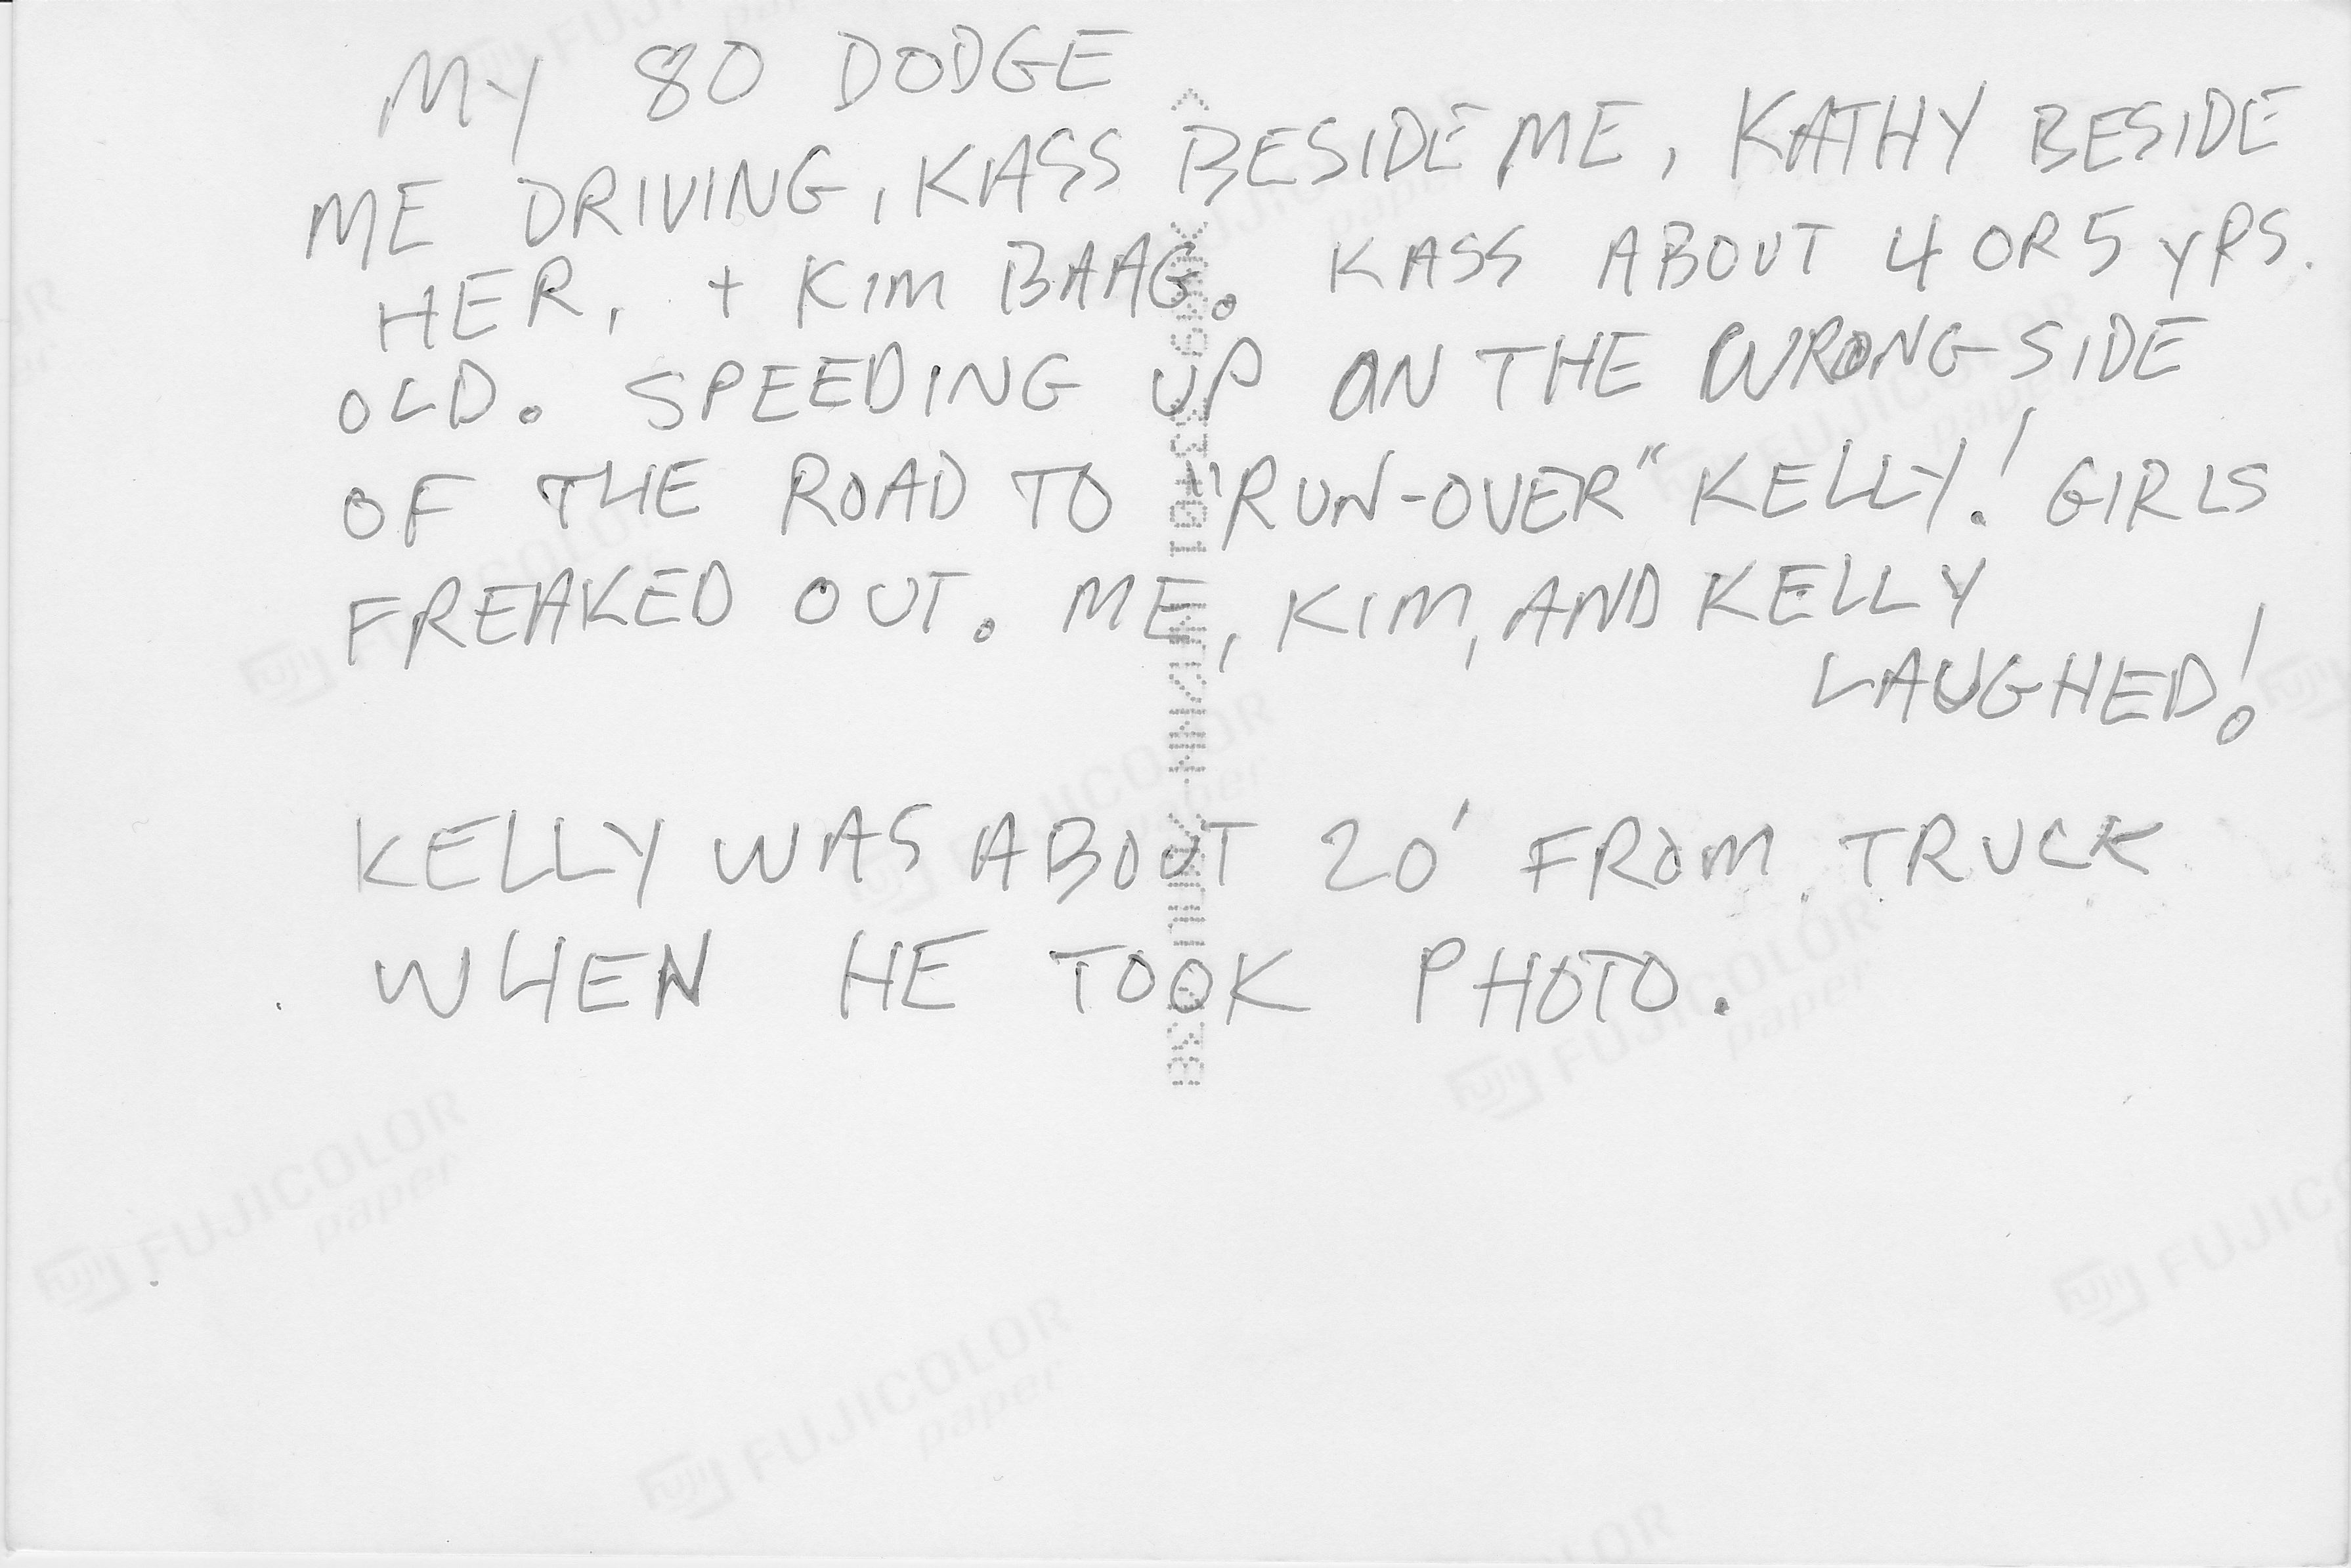 MY 80 DODGE
ME DRIVING, KASS BESIDE ME, KATHY BESIDE
HER, + KIM BAAG. KASS ABOUT 4 OR 5 YRS.
OLD. SPEEDING UP ON THE WRONG SIDE
OF THE ROAD TO "RUN-OVER" KELLY! GIRLS
FREAKED OUT. ME, KIM, AND KELLY
LAUGHED!
KELLY WAS ABOUT 20' FROM TRUCK
WHEN HE TOOK PHOTO.
FUJI FUJICOLOR
paper